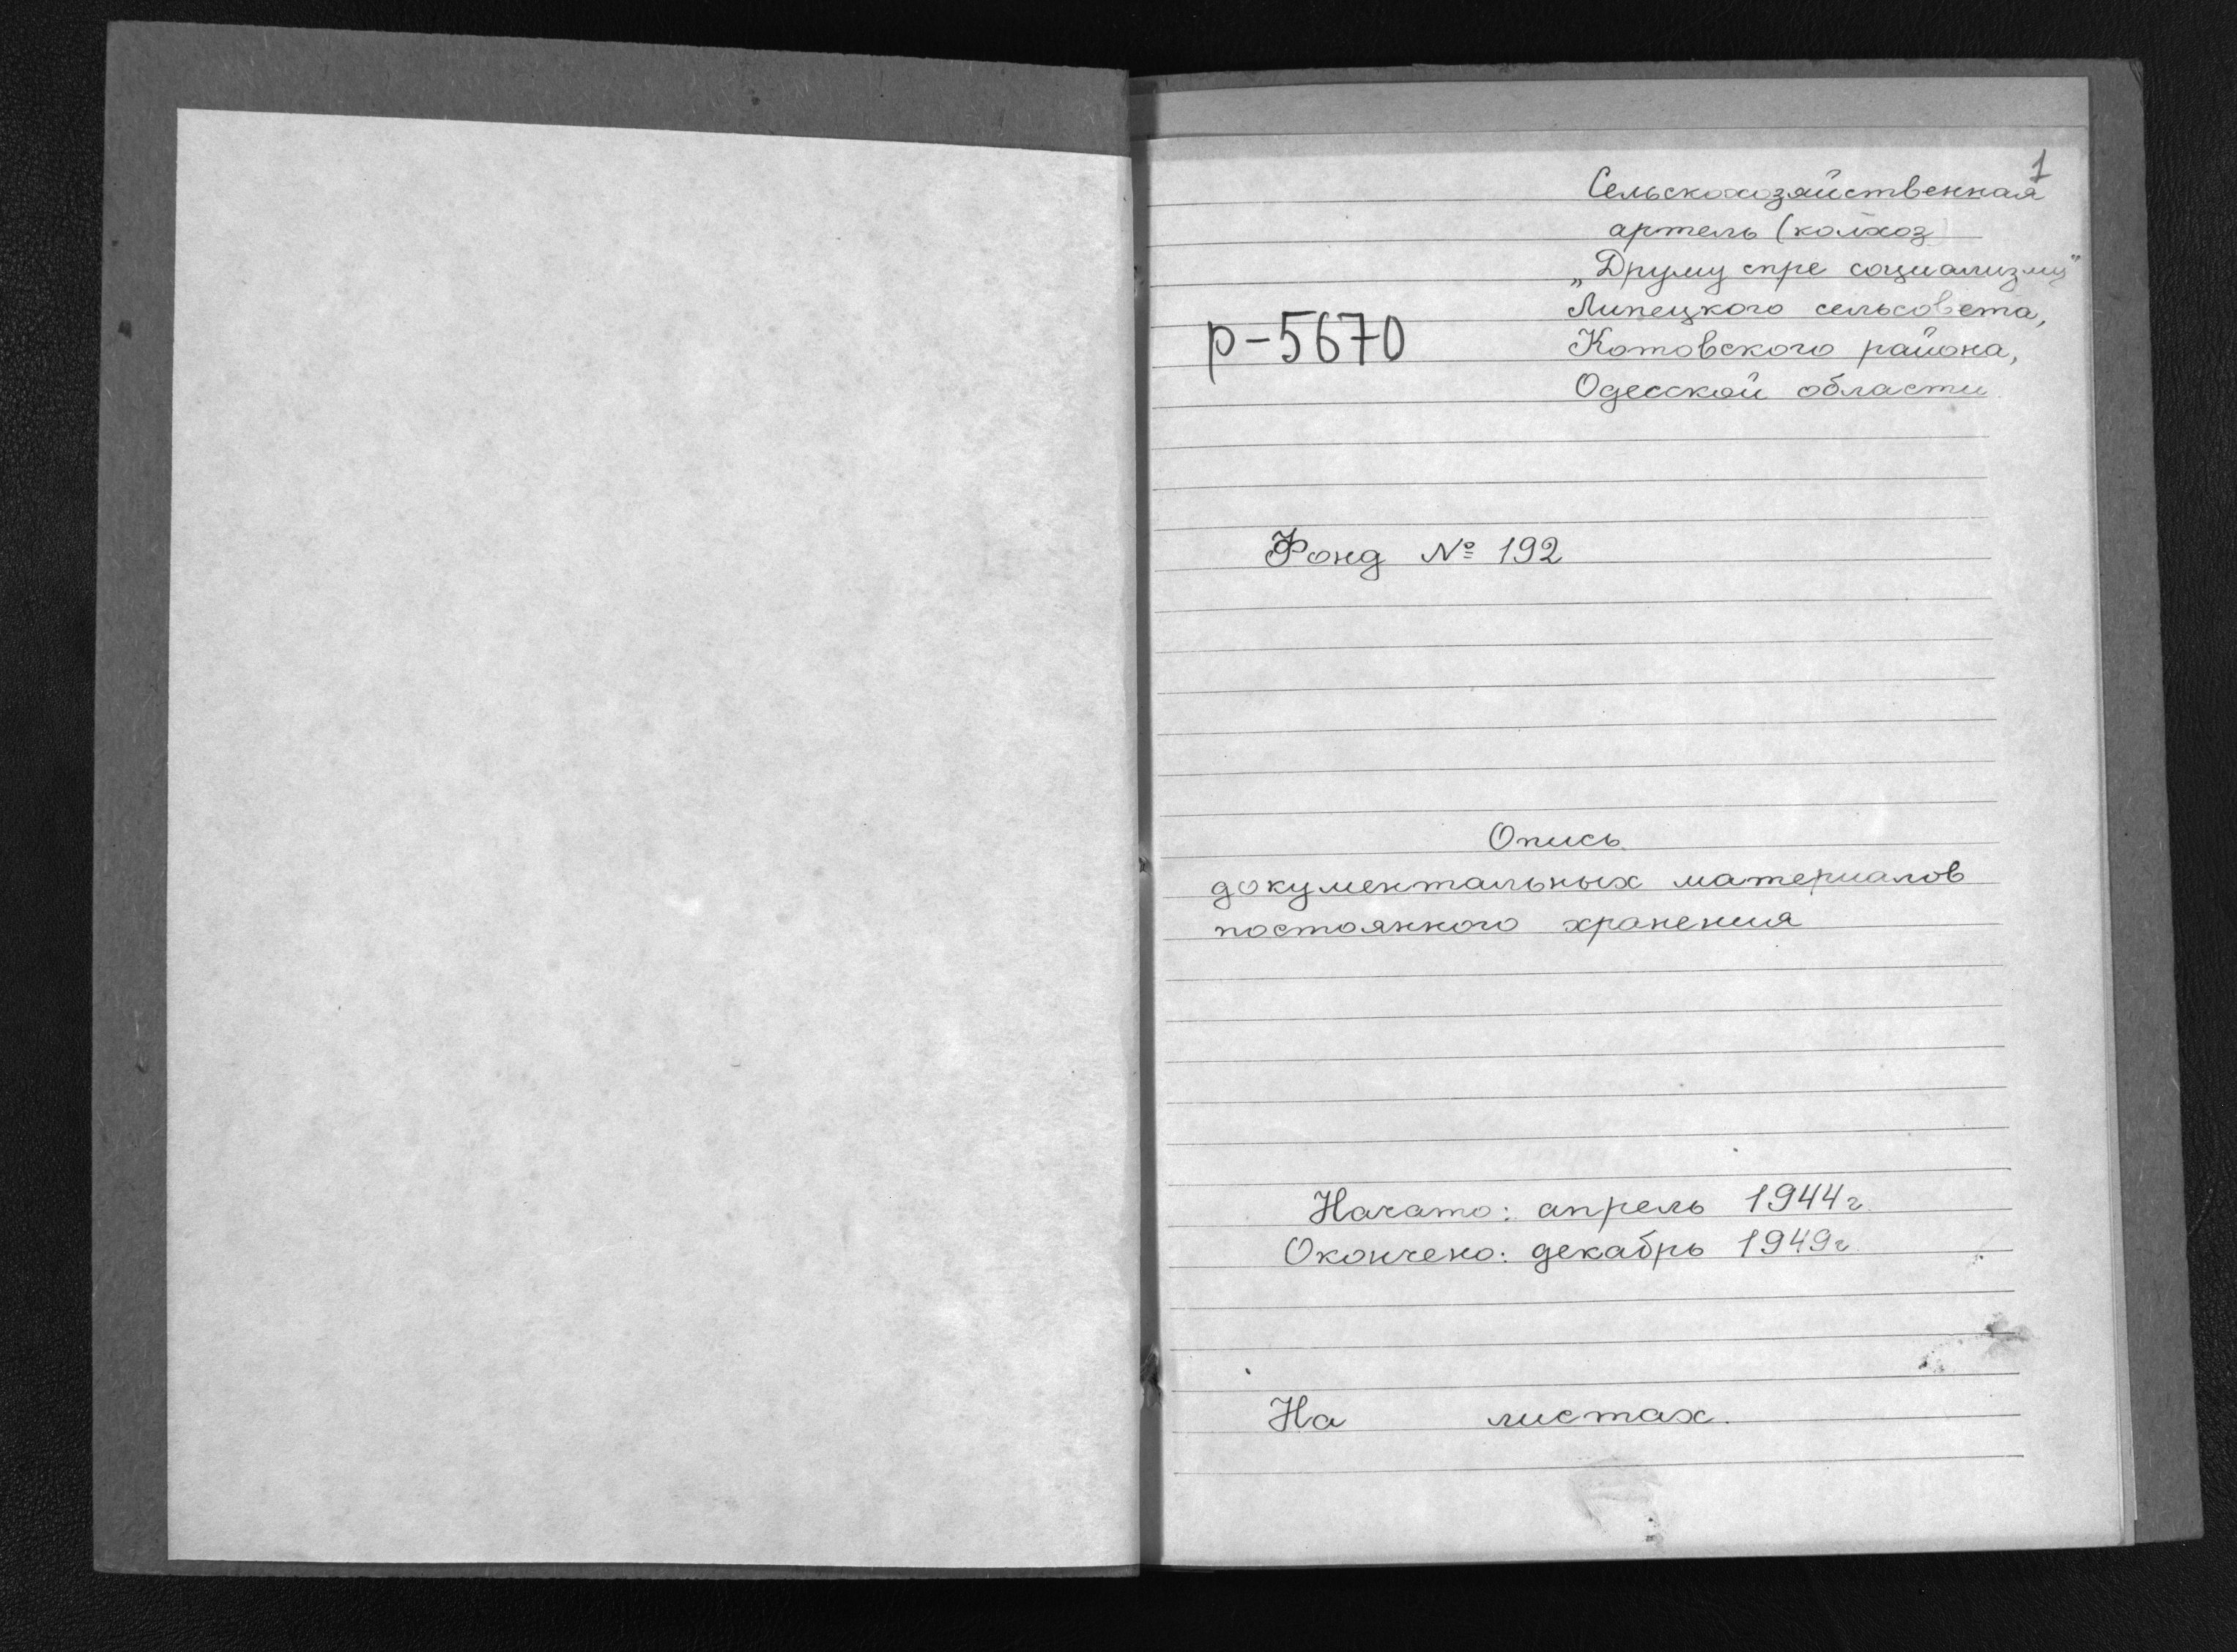 1
Сельскохозяйственная
артель (колхоз
„Друму спре социализму"
Липецкого сельсовета,
р-5670
Котовского района,
Одесской области
Фонд № 192
Опись
документальных материалов
постоянного хранения
Начато: апрель 1944г
Окончено: декабрь 1949г
На листах.